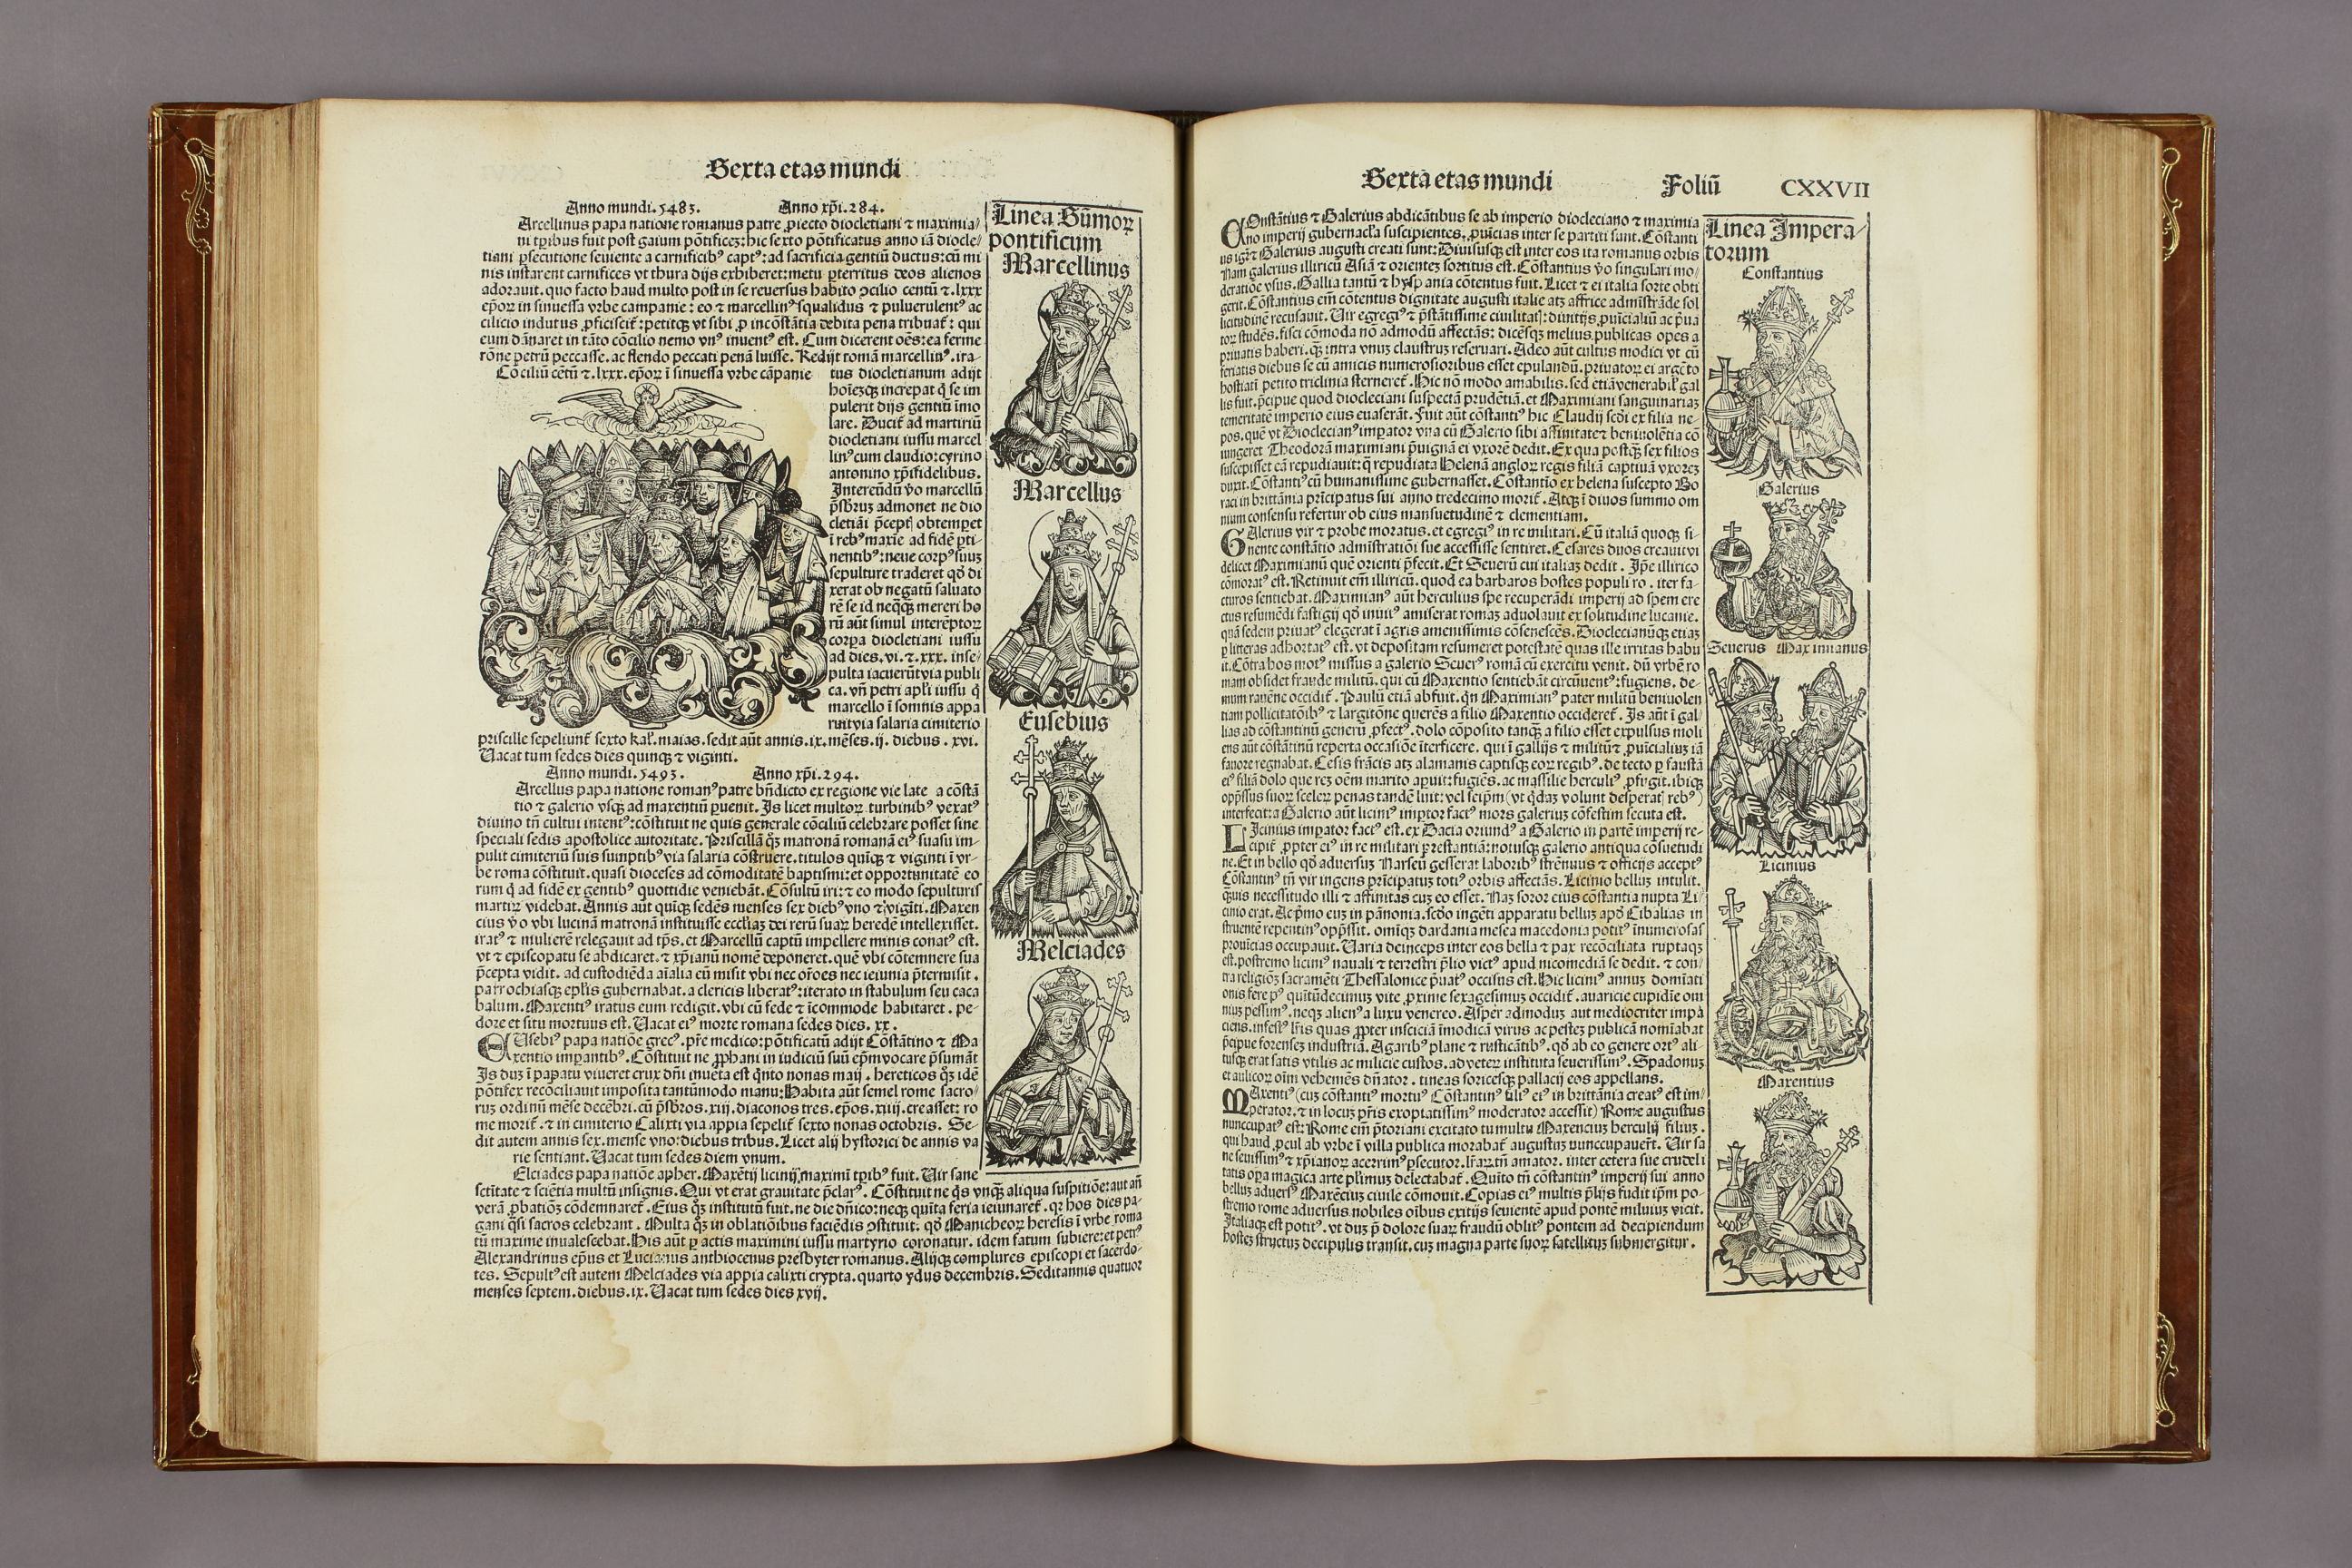 Sexta etas mundi
Anno mundi.5483. Anno xp̄i.284.
Arcellinus papa natione romanus patre ꝓiecto diocletiani ⁊ maximia/
ni tꝑibus fuit post gaium pōtificez:hic sexto pōtificatus anno iā diocle-
tiani ꝑsecutione seuiente a carnificibꝰ captꝰ:ad sacrificia gentiū ductus:cū mi
nis instarent carnifices vt thura dijs exhiberet:metu ꝑterritus deos alienos
adorauit.quo facto haud multo post in se reuersus habito ꝯcilio centū ⁊.lxxx
ep̄oꝝ in sinuessa vrbe campanie: eo ⁊ marcellinꝰ squalidus ⁊ puluerulentꝰ ac
cilicio indutus ꝓficiscit̄:petitqꝫ vt sibi ꝓ incōstātia debita pena tribuat̄: qui
eum dānaret in tāto cōcilio nemo vnꝰ inuentꝰ est. Cum dicerent oēs:ea ferme
rōne petrū peccasse.ac flendo peccati penā luisse. Redijt romā marcellinꝰ.ira-
Cōciliū cētū ⁊.lxxx.ep̄oꝝ ī sinuessa vrbe cāpanie
tus diocletianum adijt
hoīezqꝫ increpat q̄ se im
pulerit dijs gentiū īmo
lare. Ducit̄ ad martiriū
diocletiani iussu marcel
linꝰ cum claudio:cyrino
antonino xp̄ifidelibus.
Intereūdū v̄o marcellū
p̄sbrūz admonet ne dio
cletiāi p̄ceptꝭ obtemperet
ī rebꝰ maxie ad fidē ꝑti-
nentibꝰ:neue corpꝰ suuz
sepulture traderet qd̄ di
xerat ob negatū saluato
rē se id neqq̄ꝫ mereri ho
rū aūt simul interēptoꝝ
corpa diocletiani iussu
ad dies.vi.⁊.xxx. inse/
pulta iacuerūt via publi
ca. vn̄ petri apl̄i iussu q̄
marcello ī somnis appa
ruit via salaria cimiterio
priscille sepeliunt̄ sexto kal̄.maias.sedit aūt annis.ix.mēses.ij. diebus . xvi.
Uacat tum sedes dies quinqꝫ ⁊ viginti.
Anno mundi.5493. Anno xp̄i.294.
Arcellus papa natione romanꝰ patre bn̄dicto ex regione vie late a cōstā
tio ⁊ galerio vsqꝫ ad maxentiū ꝑuenit. Is licet multoꝝ turbinibꝰ vexatꝰ
diuino tn̄ cultui intentꝰ:cōstituit ne quis generale cōciliū celebrare posset sine
speciali sedis apostolice autoritate. Priscillā qꝫ matronā romanā eiꝰ suasu im-
pulit cimiteriū suis sumptibꝰ via salaria cōstruere.titulos quīqꝫ ⁊ viginti ī vr-
be roma cōstituit.quasi dioceses ad cōmoditatē baptismi:et opportunitatē eo
rum q̄ ad fidē ex gentibꝰ quottidie veniebāt. Cōsultū iri:⁊ eo modo sepulturis
martiꝝ videbat. Annis aūt quīqꝫ sedēs menses sex diebꝰ vno ⁊ vigīti. Maxen
cius v̄o vbi lucinā matronā instituisse eccl̄iaz dei rerū suaꝝ heredē intellexisset.
iratꝰ ⁊ mulierē relegauit ad tp̄s.et Marcellū captū impellere minis conatꝰ est.
vt ⁊ episcopatu se abdicaret.⁊ xp̄ianū nomē deponeret.quē vbi cōtemnere sua
p̄cepta vidit. ad custodiēda aīalia eū misit vbi nec or̄oes nec ieiunia p̄termisit .
parrochiasqꝫ epl̄is gubernabat.a clericis liberatꝰ:iterato in stabulum seu caca
balum. Maxentiꝰ iratus eum redigit.vbi cū fede ⁊ īcommode habitaret . pe-
dore et situ mortuus est. Uacat eiꝰ morte romana sedes dies. xx .
EUsebiꝰ papa natiōe grecꝰ.pr̄e medico:pōtificatū adijt Cōstātino ⁊ Ma
xentio imꝑantibꝰ.Cōstituit ne ꝓphani in iudiciū suū ep̄m vocare p̄sumāt
Is duz ī papatu viueret crux dn̄i inuēta est q̄nto nonas maij . hereticos qꝫ idē
pōtifex recōciliauit imposita tantūmodo manu:Habita aūt semel rome sacro-
ruz ordinū mēse decēbri.cū p̄sb̄ros.xiij.diaconos tres.ep̄os.xiiij.creasset: ro
me morit̄.⁊ in cimiterio Calixti via appia sepelit̄ sexto nonas octobris. Se-
dit autem annis sex.mense vno:diebus tribus. Licet alij hystorici de annis va
rie sentiant. Uacat tum sedes diem vnum.
Elciades papa natiōe apher. Maxētij licinij maximī tꝑibꝰ fuit. Uir sane
sctitate ⁊ sciētia multū insignis. Qui vt erat grauitate p̄clarꝰ . Cōstituit ne q̄s vnqꝫ aliqua suspitiōe:aut an̄
verā ꝓbatiōꝫ cōdemnaret̄. Eius qꝫ institutū fuit.ne die dn̄ico:neqꝫ quīta feria ieiunaret̄.qꝛ hos dies pa-
gani q̄si sacros celebrant. Multa qꝫ in oblatiōibus faciēdis ꝯstituit. qd̄ Manicheoꝝ heresis ī vrbe roma
tū maxime inualescebat. His aūt ꝑactis maximini iussu martyrio coronatur. idem fatum subiere:et petrꝰ
Alexandrinus ep̄us et Lucianus anthiocenus presbyter romanus. Alijqꝫ complures episcopi et sacerdo-
tes. Sepultꝰ est autem Melciades via appia calixti crypta.quarto ydus decembris. Sedit annis quatuor
menses septem.diebus.ix. Uacat tum sedes dies xvij.
Linea Sūmoꝝ
pontificum
Marcellinus
Marcellus
Eusebius
Melciades
Sexta etas mundi Foliū CXXVII
COnstātius ⁊ Galerius abdicātibus se ab imperio diocleciano ⁊ maximia
no imperij gubernacl̄a suscipientes.ꝓuīcias inter se partiti sunt. Cōstanti
us igr̄ ⁊ Galerius augusti creati sunt: Diuisusqꝫ est inter eos ita romanus orbis
Nam galerius illiricū Asiā ⁊ orientez sortitus est. Cōstantius v̄o singulari mo-
deratiōe vsus. Gallia tantū ⁊ hyspania cōtentus fuit. Licet ⁊ ei italia sorte obti
gerit. Cōstantius em̄ cōtentus dignitate augusti italie atqꝫ affrice admīstrāde sol
licitudinē recusauit. Uir egregiꝰ ⁊ p̄stātissime ciuilitatꝭ: diuitijs ꝓuīcialiū ac p̄ua
toꝝ studēs. fisci cōmoda nō admodū affectās: dicēsqꝫ melius publicas opes a
priuatis haberi.qꝫ intra vnuz claustruz reseruari. Adeo aūt cultus modici vt cū
feriatis diebus se cū amicis numerosioribus esset epulandū.priuatoꝝ ei argēto
hostiatī petito triclinia sterneret̄. Hic nō modo amabilis.sed etiā venerabil̄ gal
lis fuit.p̄cipue quod diocleciani suspectā prudētiā.et Maximiani sanguinariaz
temeritatē imperio eius euaserāt. Fuit aūt cōstantiꝰ hic Claudij scd̄i ex filia ne-
pos.quē vt Dioclecianꝰ imꝑator vna cū Galerio sibi affinitate ⁊ beniuolētia cō
iungeret Theodorā maximiani p̄uignā ei vxorē dedit. Ex qua postqꝫ sex filios
suscepisset eā repudiauit:q̄ repudiata Helenā angloꝝ regis filiā captiuā vxorez
duxit. Cōstantiꝰ cū humanissime gubernasset. Cōstantio ex helena suscepto Bo
raci in brittānia prīcipatus sui anno tredecimo morit̄. Atqꝫ ī diuos summo om
nium consensu refertur ob eius mansuetudinē ⁊ clementiam.
GAlerius vir ⁊ probe moratus.et egregiꝰ in re militari. Cū italiā quoqꝫ si-
nente constātio admīstratiōi sue accessisse sentiret. Cesares duos creauit vi
delicet Maximianū quē orienti p̄fecit. Et Seuerū cui italiaz dedit . Ip̄e illirico
cōmoratꝰ est. Retinuit em̄ illiricū.quod ea barbaros hostes populi ro. iter fa-
cturos sentiebat. Maximianꝰ aūt herculius spe recuperādi imperij ad spem ere
ctus resumēdi fastigij qd̄ inuitꝰ amiserat romaz aduolauit ex solitudine lucanie.
quā sedem priuatꝰ elegerat ī agris amenissimis cōsenescēs. Dioclecianūqꝫ etiaz
ꝑ litteras adhortatꝰ est.vt depositam resumeret potestatē quas ille irritas habu
it. Cōtra hos motꝰ missus a galerio Seuerꝰ romā cū exercitu venit. dū vrbē ro
mam obsidet fraude militū.qui cū Maxentio sentiebāt circūuent̄:fugiens. de-
mum rauēne occidit̄ . Paulū etiā abfuit.qn̄ Maximianꝰ pater militū beniuolen
tiam pollicitatōibꝰ ⁊ largitōne querēs a filio Maxentio occideret̄. Is aūt ī gal-
lias ad cōstantinū generū ꝓfectꝰ. dolo cōposito tanqꝫ a filio esset expulsus moli
ens aūt cōstātinū reperta occasiōe īterficere. qui ī gallijs ⁊ militū ⁊ ꝓuīcialiuz iā
fauore regnabat. Cesis frācis atqꝫ alamanis captisqꝫ eoꝝ regibꝰ. detecto ꝑ faustā
eiꝰ filiā dolo que rez oēm marito apuit:fugiēs. ac massilie herculiꝰ ꝓfugit.ibiqꝫ
opp̄ssus suoꝝ sceleꝝ penas tandē luit: vel seip̄m (vt q̄daz volunt desperatꝭ rebꝰ)
interfecit:a Galerio aūt liciniꝰ imꝑtor facꝰ mors galerium cōfestim secuta est.
LIcinius imꝑator facꝰ est. ex Dacia oriundꝰ a Galerio in partē imperij re-
cipit̄ ꝓpter eiꝰ in re militari prestantiā:notusqꝫ galerio antiqua cōsuetudi
ne. Et in bello qd̄ aduersuz Narseū gesserat laboribꝰ strēnuus ⁊ officijs acceptꝰ
Cōstantinꝰ tn̄ vir ingens prīcipatuz totiꝰ orbis affectās. Licinio belluz intulit.
q̄uis necessitudo illi ⁊ affinitas cuz eo esset. Naz soror eius cōstantia nupta Li-
cinio erat. Ac p̄mo euz in pānonia.scd̄o ingēti apparatu belluz apd̄ Cibalias in
struentē repentinꝰ opp̄ssit. omīqꝫ dardania mesea macedonia potitꝰ īnumerosas
prouīcias occupauit. Uaria deinceps inter eos bella ⁊ pax recōciliata ruptaqꝫ
est.postremo liciniꝰ nauali ⁊ terrestri p̄lio victꝰ apud nicomediā se dedit. ⁊ con-
tra religiōꝫ sacramēti Thessalonice p̄uatꝰ occisus est. Hic liciniꝰ annuz domīati
onis fere pꝰ quītūdecimuz vite ꝓxime sexagesimuz occidit̄. auaricie cupidīe om
niuz pessimꝰ.neqꝫ alienꝰ a luxu venereo. Asper admoduz aut mediocriter impā
ciens. infestꝰ lr̄is quas ꝓpter insciciā īmodicā virus ac pestez publicā nomīabat
p̄cipue forensez industriā. Agaribꝰ plane ⁊ rusticātibꝰ. qd̄ ab eo genere ortꝰ ali-
tusqꝫ erat satis vtilis ac milicie custos. ad veterz instituta seuerissimꝰ. Spadonuz
et aulicoꝝ oīm vehemēs dn̄ator . tineas soricesqꝫ pallacij eos appellans.
MAxentiꝰ (cuz cōstantiꝰ mortuꝰ Constantinꝰ filiꝰ eiꝰ in brittānia creatꝰ est im/
perator.⁊ in locuz pr̄is exoptatissimꝰ moderator accessit) Rome augustus
nunccupatꝰ est: Rome em̄ p̄toriani excitato tumultu Maxencius herculij filius.
qui haud ꝓcul ab vrbe ī villa publica morabat̄ augustuz nunccupauer̄t. Uir sa
ne seuissimꝰ ⁊ xp̄ianoꝝ acerrimꝰ ꝑsecutor. lr̄aꝝ tn̄ amator. inter cetera sue crudeli
tatis oꝑa magica arte pl̄imuz delectabat̄. Quīto tn̄ cōstantinꝰ imperij sui anno
belluz aduersꝰ Maxēciuz ciuile cōmouit. Copias eiꝰ multis p̄lijs fudit ip̄m po-
stremo rome aduersus nobiles oībus exitijs seuientē apud pontē miluiuz vicit.
Italiaqꝫ est potitꝰ. vt duz p̄ dolore suaꝝ fraudū oblitꝰ pontem ad decipiendum
hostez structuz decipulis transit.cuz magna parte suoꝝ satellituz submergitur.
Linea Impera/
torum
Constantius
Galerius
Seuerus Maximianus
Licinius
Maxentius